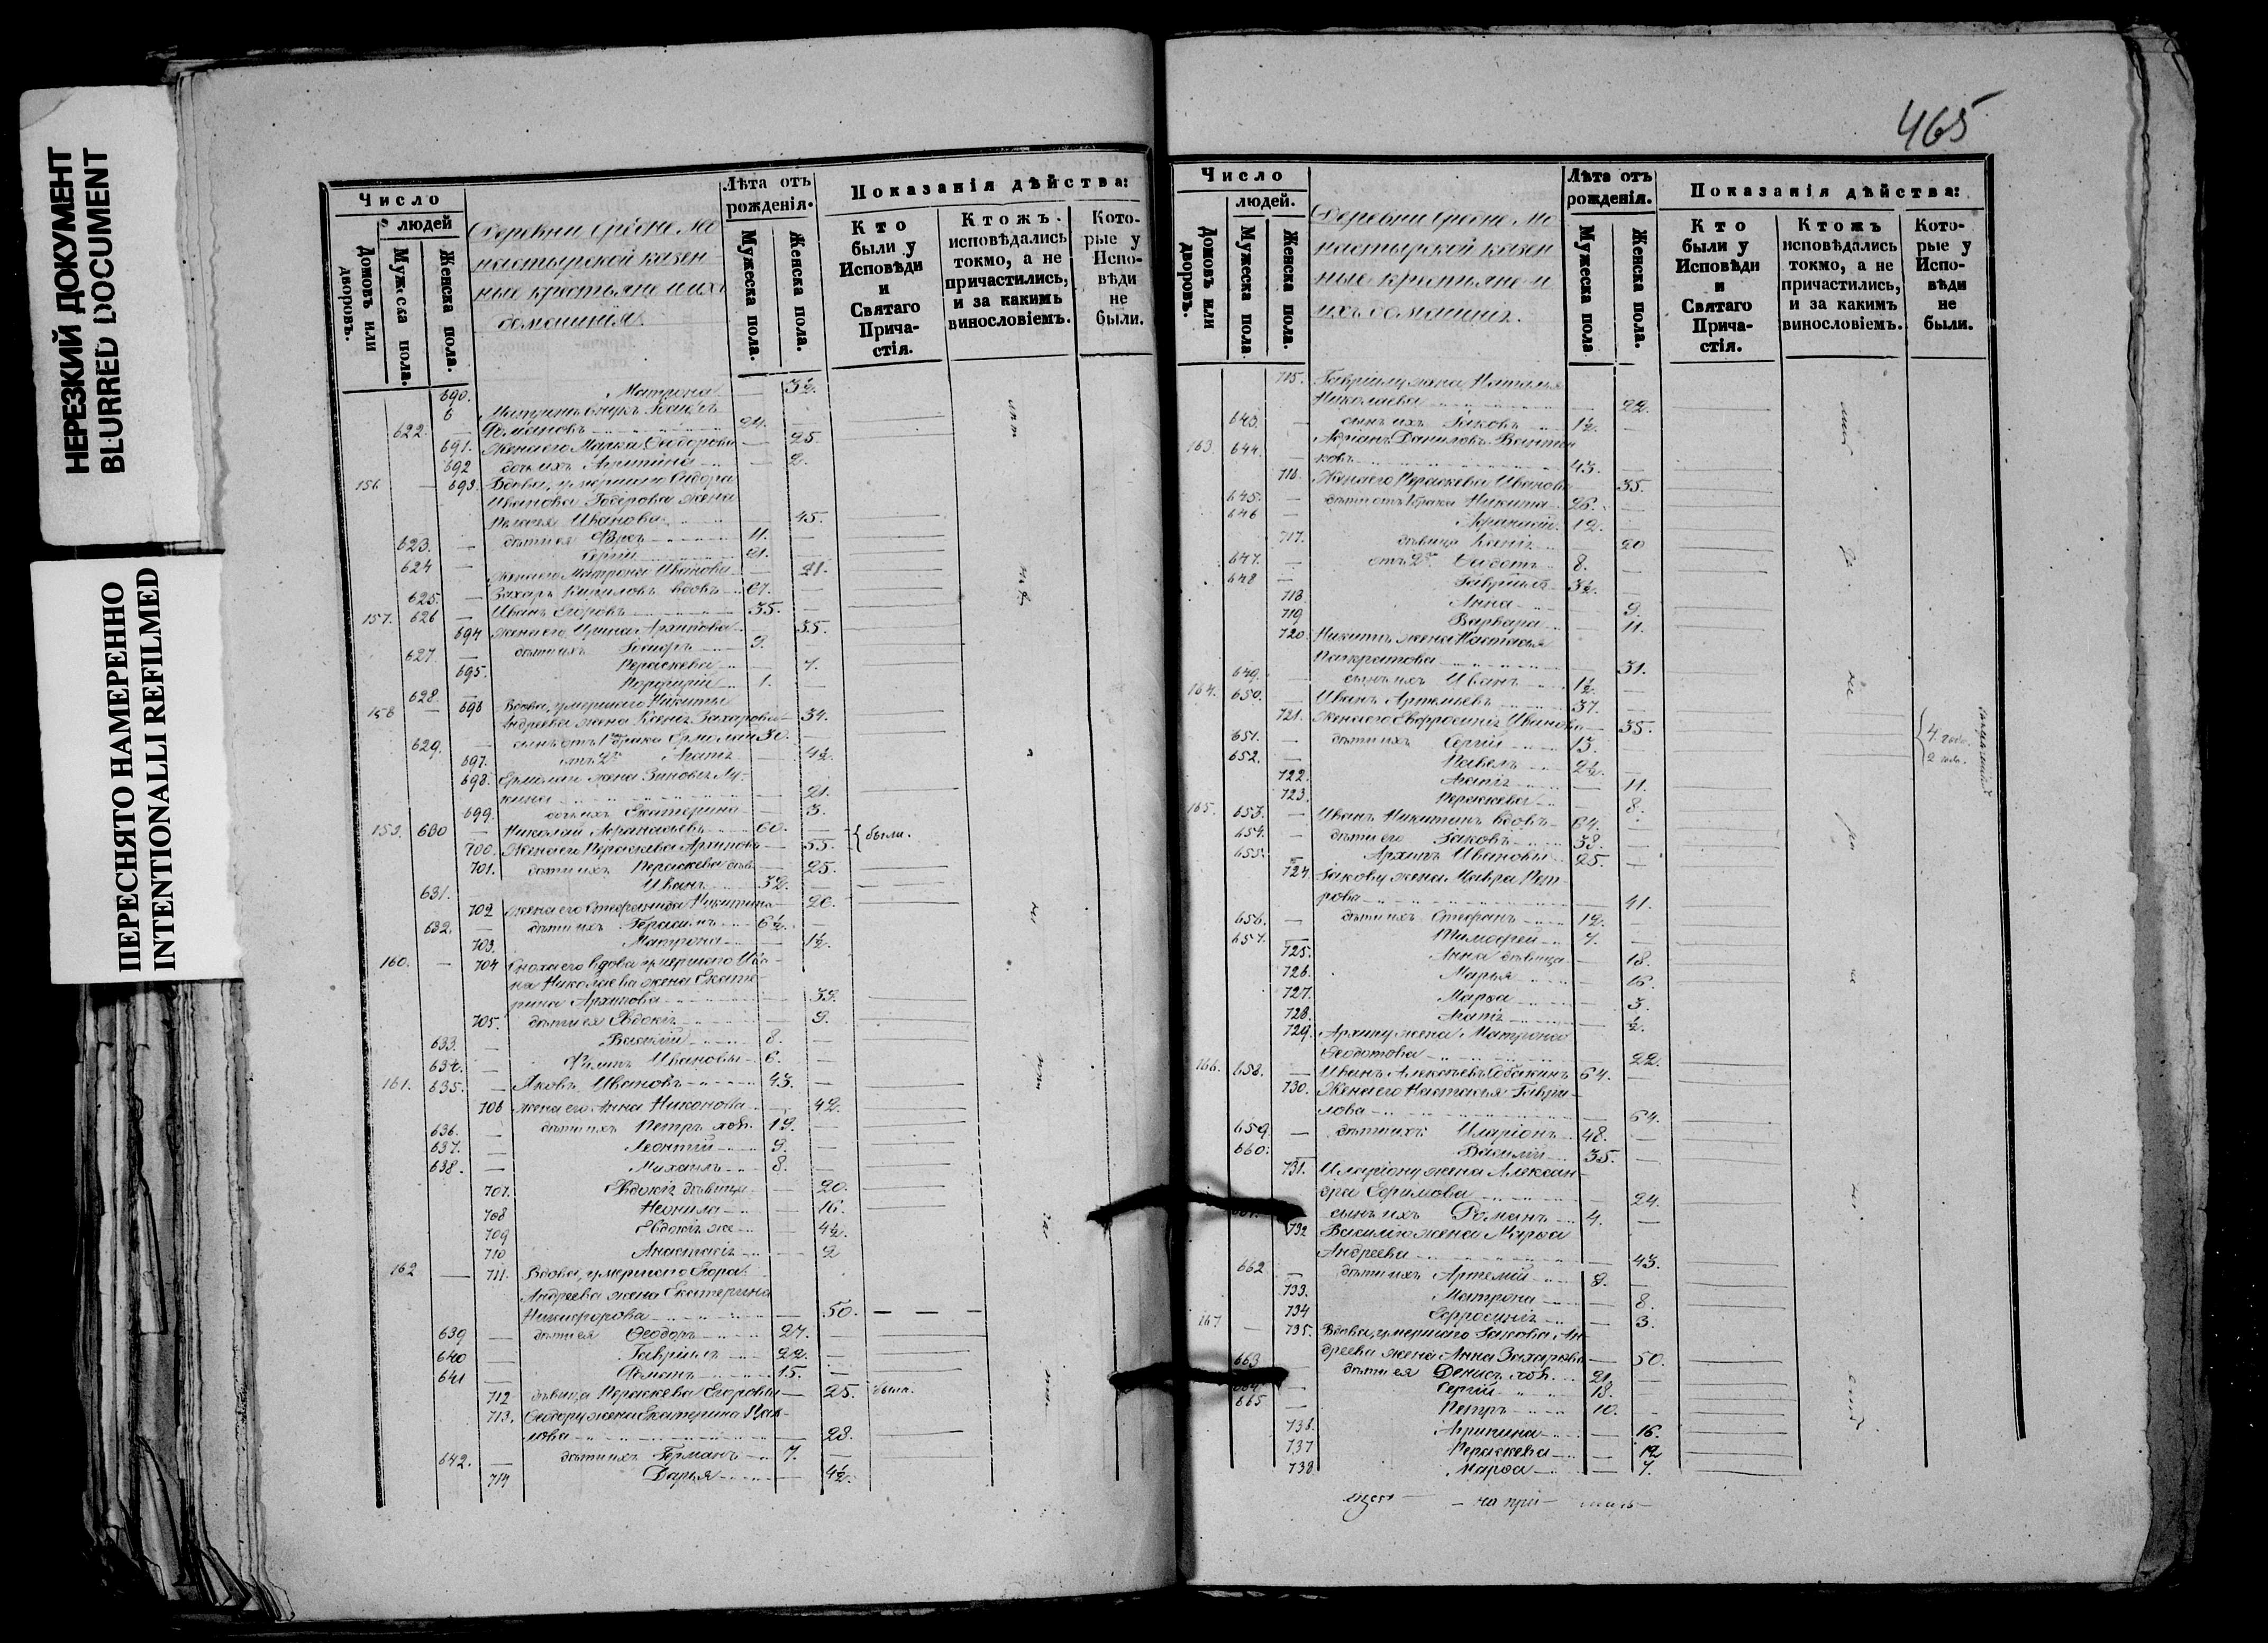 НЕРЕЗКИЙ ДОКУМЕНТ
BLURRED DOCUMENT
ПЕРЕСНЯТО НАМЕРЕННО
INTENTIONALLI REFILMED
Число
людей
Домовъ или дворовъ.
Мужеска пола.
Женска пола.
Деревни Средне Мо
настырской казен-
ные крестьяне и ихъ
домашнія
Лѣта отъ рожденія.
Мужеска пола.
Женска пола.
Показанія дѣйства:
Кто были у Исповѣди и Святаго Прича-стія.
Ктожъ исповѣдались токмо, а не причастились, и за какимъ винословіемъ.
Кото-рые у Испо-вѣди не были.
690. Матрона 3½
622. Романовъ 24.
691. Жена его Марѳа Ѳеодорова 25.
692 дочь ихъ Агрипина 2.
156 693. Вдова, умершаго Сидора
Иванова жена
Иванова 45.
623. дѣти ея 11.
624 Сергій 21.
Жена его Матрона Иванова 21.
625. Захаръ вдовъ 67.
157. 626 Иванъ Егоровъ 35.
694 Жена его Ирина Архипова 35.
627. дѣти ихъ 9.
695. Параскева 7.
628. Порфирій 1.
158 696 Вдова, умершаго Никиты
Андреева жена Ксенія Захарова 34.
629. сынъ отъ 1го брака Ермолай 30.
697. отъ 2го Агапія 4½
698. Ермолаю жена Зиновія Лу-
кина 21.
699. дочь ихъ Екатерина 3.
159. 630 Николай Аѳанасьевъ 60. были.
700. Жена его Параскева Архипова 55.
701. дѣти ихъ Параскева дѣв. 25.
631. Иванъ 32.
702 Жена его Стефанида Никитина 20.
632. дѣти ихъ Герасимъ 6½
703. Матрона 1½.
160. 704 Сноха его вдова умершаго Ива-
на Николаева жена Екате-
рина Архипова 39.
705. дѣти ея Евдокія 9.
633. Василій 8.
634. Филипъ Ивановы 6.
161. 635. Яковъ Ивановъ 43.
706 Жена его Анна Никонова 42.
636. дѣти ихъ Петръ хол. 19.
637. Леонтій 9.
638. Михаилъ 8.
707. Евдокія дѣвица 20.
708 Неонила 16.
709 Евдокія же 4½.
710 Анастасія 2
162 711. Вдова, умершаго Егора
Андреева жена Екатерина
Никифорова 50.
639 дѣти ея Ѳеодоръ 27.
640 Гавріилъ 22.
641 Романъ 15.
712 дѣвица Параскева Егоровы 25. была.
713. Ѳеодору жена Екатерина Пав-
лова 28.
642. дѣти ихъ Германъ 7.
714 Дарья 4½.
465
Число
людей.
Домовъ или дворовъ.
Мужеска пола
Женска пола.
Деревни Средне Мо
настырской казен
ные крестьяне и
ихъ домашнія.
Лѣта отъ рожденія.
Мужеска пола
Женска пола.
Показанія дѣйства:
Кто были у Исповѣди и Святаго Прича-стія.
Ктожъ исповѣдались токмо, а не причастились, и за какимъ винословіемъ.
Кото-рые у Испо-вѣди не были.
715. Гавріилу жена Наталья
Николаева 22.
643. сынъ ихъ Іаковъ 1½.
163. 644. Адріанъ Даниловъ
ковъ 43.
716. Жена его Параскева Иванова 35.
645. дѣти отъ 1 брака Никита 26.
646 Аѳанасій 12.
717. дѣвица Ксенія 20
647. отъ 2го Ѳедотъ 8.
648 Гавріилъ 3½.
718. Анна 9.
719 Варвара 11.
720. Никитѣ жена Настасья
Панкратова 31.
649. сынъ ихъ Иванъ 1½
164. 650. Иванъ Артемьевъ 37.
721. Жена его Евфросинія Иванова 35.
651. дѣти ихъ Сергій 13.
652. Павелъ 2½.
722. Агапія 11.
723. Параскева 8.
165. 653. Иванъ Никитинъ вдовъ 64.
654. дѣти его Іаковъ 38.
655. Архипъ Ивановы 25.
724 Іакову жена Мавра Пет-
рова 41.
656. дѣти ихъ Стефанъ 12.
657. Тимофей 7.
725. Анна дѣвица 18.
726. Марья 16.
727. Марѳа 3.
728. Агапія ½.
729. Архипу жена Матрона
Ѳеодотова 22.
166. 658. Иванъ Алексѣевъ Собакинъ 64.
730. Жена его Настасья Гаври-
лова 64.
659 дѣти ихъ: Иларіонъ 48.
660. Василій 35.
731. Иларіону жена Алексан-
дра Ефимова 24.
сынъ ихъ Романъ 4.
732 Василію жена Марѳа
Андреева 43.
662 дѣти ихъ Артемій 8.
733. Матрона 8.
734 Ефросинія 3.
167 735. Вдова, умершаго Іакова Ан
дреева жена Анна Захарова 50.
663 дѣти ея Денисъ хол. 21.
664 Сергій 13.
665 Петръ 10.
736. Агрипина 16.
737 Параскева 12
738 Марѳа 7.